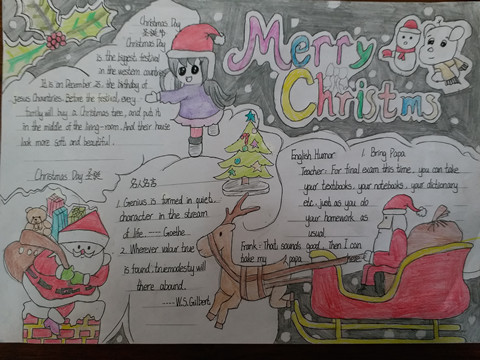 Christmas Day
圣诞节
Christmas Day
is the biggest festival
in the western countries
It is on December 25, the birthday of
Jesus Chowntries. Before the festival, every
family will buy a Christmas tree, and put it
in the middle of the living-room. And their house
look more soft and beautiful.
Merry
Christms
Christmas Day 圣诞
名人名言
1. Genius is formed in quiet,
character in the stream
of life. ---- Goethe
2. Wherever valour true
is found, true modesty will
there abound.
----W.S. Gilbert
English Humor 1. Bring Papa
Teacher: For final exam this time, you can take
your textbooks, your notebooks, your dictionary
etc. just as you do
your homework as
usual.
Frank: That sounds good. Then I can
take my papa here